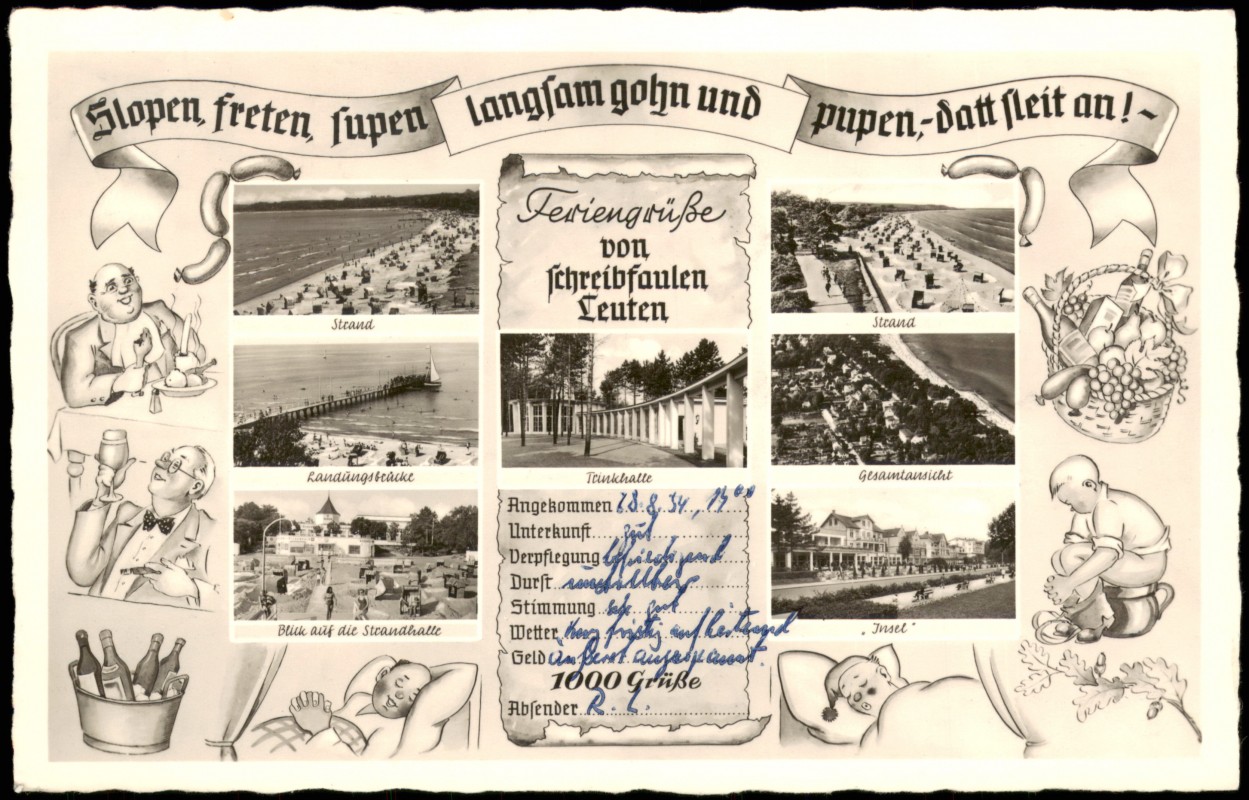 Slopen, freten, supen langsam gohn und pupen,-datt sleit an!-
Feriengrüße
von
schreibfaulen
Leuten
Strand
Strand
Landungsbrücke
Trinkhalle
Gesamtansicht
Blick auf die Strandhalle
"Insel"
Angekommen 28.8.54, 14⁰⁰
Unterkunft gut
Verpflegung
Durst unstillbar
Stimmung sehr gut
Wetter
Geld äußerst angespannt.
1000 Grüße
Absender R. L.